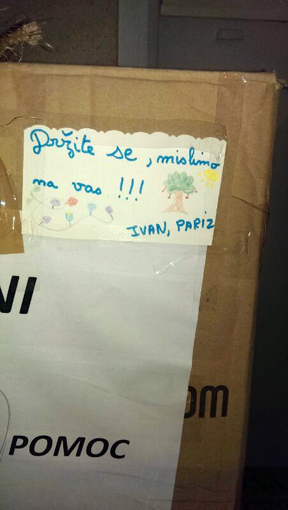 Držite se, mislimo
na vas !!!
IVAN, PARIZ
NI
OM
POMOC